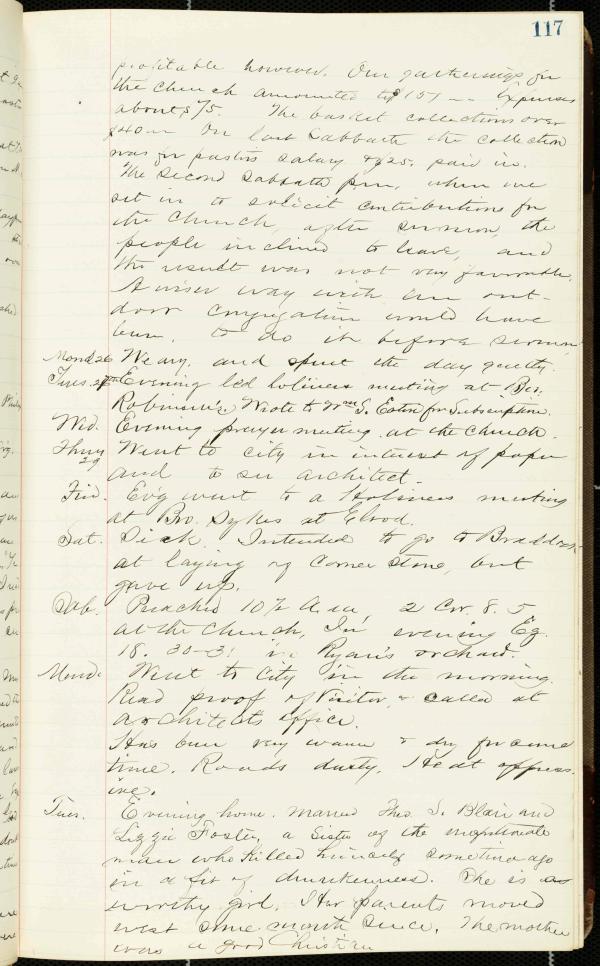 117
profitable however. Our gatherings for
the church amounted to $151 -- Expenses
about $75. The basket collections over
$40 -- On last Sabbath the collection
was for pastor's salary & $25. paid in.
The second Sabbath p.m., when we
set in to solicit contributions for
the church, after sermon, the
people inclined to leave, and
the result was not very favorable.
A wiser way with an out-
door congregation would have
been, to do it before sermon
Mond. 26 Weary, and spent the day quietly.
Tues. 27 Evening led holiness meeting at Bro.
Robinson's. Wrote to Wm S. Eaton for Subscription.
Wed. Evening prayer meeting at the church.
Thurs. 29 Went to city in interest of paper
and to see architect.
Frid. Ev'g went to a Holiness meeting
at Bro. Sykes at Elrod.
Sat. Sick. Intended to go to Braddock
at laying of Corner Stone, but
gave up.
Sab. Preached 10½ A.M. 2 Cor. 8. 5
at the church, In evening
18. 30-31 in Ryan's orchard.
Mond. Went to City in the morning.
Read proof of Visitor, & called at
architect's office.
Has been very warm & dry for some
time. Roads dusty. Heat oppress-
ive.
Tues. Evening home. Married Thos. S. Blair and
Lizzie Foster, a sister of the
man who killed himself sometime ago
in a fit of drunkenness. She is a
worthy girl. Her parents moved
west some month since. The mother
was a good Christian